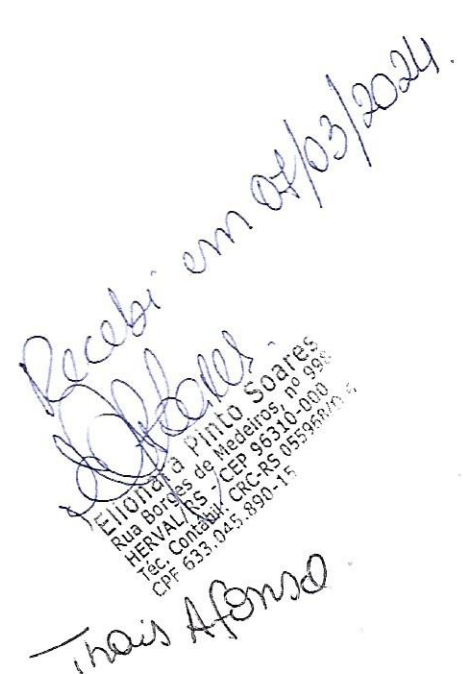 Recebi em 07/03/2024.
Soares.
Elionara Pinto Soares
Rua Borges de Medeiros, nº 998
HERVAL/RS - CEP 96310-000
Téc. Contábil CRC-RS 055968/
CPF 633.045.890-15
Thais Afonso